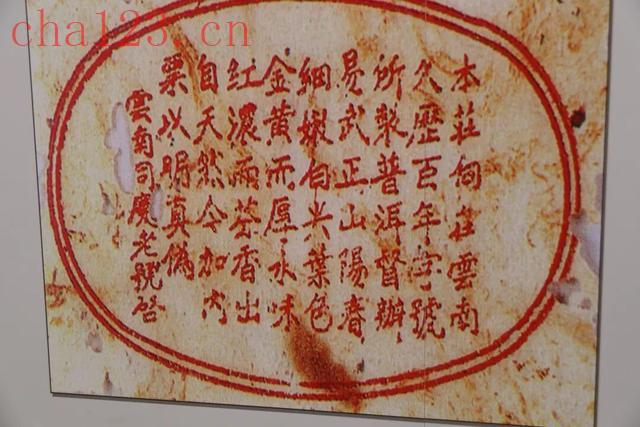 cha123.cn
本莊向在雲南
久歷百年字號
所製普洱督辦
易武正山陽春
細嫩白尖葉色
金黃而厚水味
紅濃而芬香出
自天然今加內
票以明真偽
雲南同慶老號啓